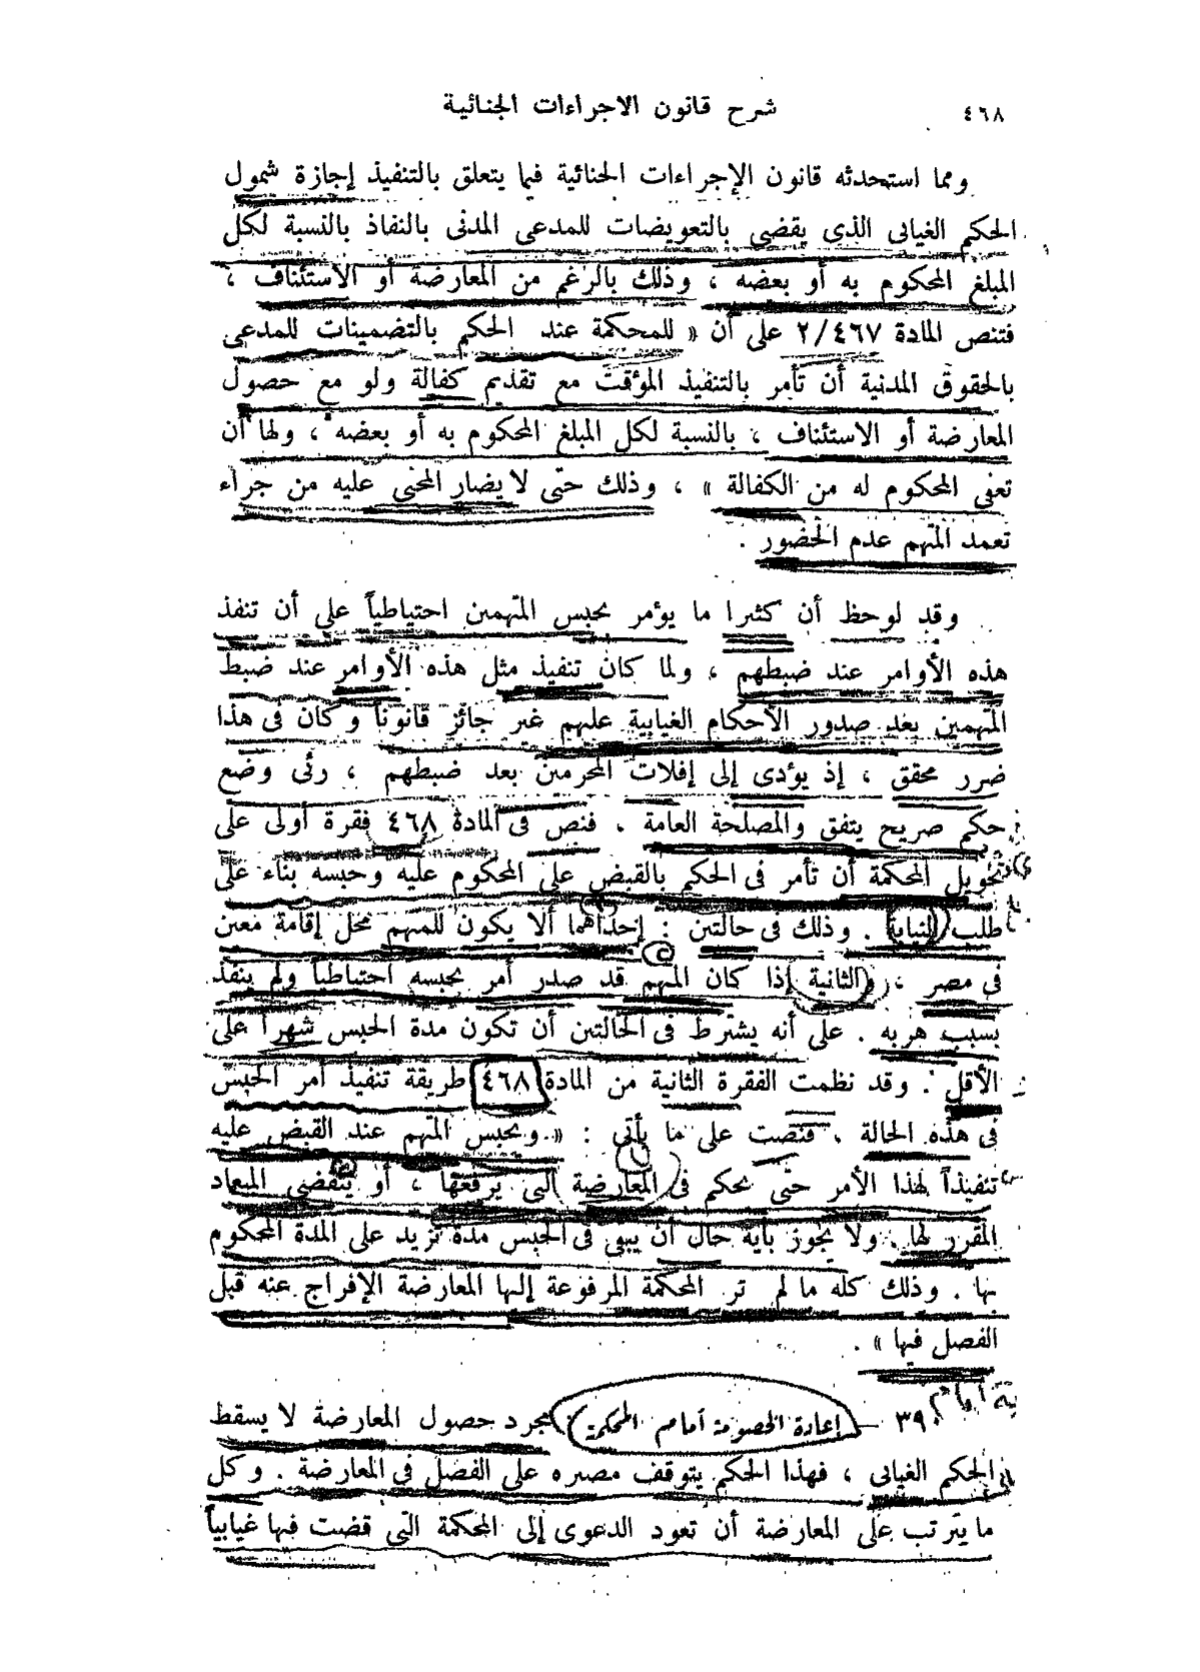 ٤٦٨
شرح قانون الاجراءات الجنائية
ومما استحدثه قانون الإجراءات الجنائية فيما يتعلق بالتنفيذ إجازة شمول
الحكم الغيابى الذى يقضى بالتعويضات للمدعى المدنى بالنفاذ بالنسبة لكل
المبلغ المحكوم به أو بعضه ، وذلك بالرغم من المعارضة أو الاستئناف ،
فتنص المادة ٤٦٧/٢ على أن « للمحكمة عند الحكم بالتضمينات للمدعى
بالحقوق المدنية أن تأمر بالتنفيذ المؤقت مع تقديم كفالة ولو مع حصول
المعارضة أو الاستئناف ، بالنسبة لكل المبلغ المحكوم به أو بعضه ، ولها أن
تعفى المحكوم له من الكفالة » ، وذلك حتى لا يضار المجنى عليه من جراء
تعمد المتهم عدم الحضور .
وقد لوحظ أن كثيرا ما يؤمر بحبس المتهمين احتياطياً على أن تنفذ
هذه الأوامر عند ضبطهم ، ولما كان تنفيذ مثل هذه الأوامر عند ضبط
المتهمين بعد صدور الأحكام الغيابية عليهم غير جائز قانوناً وكان فى هذا
ضرر محقق ، إذ يؤدى إلى إفلات المجرمين بعد ضبطهم ، رئى وضع
حكم صريح يتفق والمصلحة العامة . فنص فى المادة ٤٦٨ فقرة أولى على
تخويل المحكمة أن تأمر فى الحكم بالقبض على المحكوم عليه وحبسه بناء على
طلب النيابة . وذلك فى حالتين : إحداهما ألا يكون للمتهم محل إقامة معين
فى مصر ، والثانية إذا كان المتهم قد صدر أمر بحبسه احتياطياً ولم ينفذ
بسبب هربه . على أنه يشترط فى الحالتين أن تكون مدة الحبس شهراً على
الأقل . وقد نظمت الفقرة الثانية من المادة ٤٦٨ طريقة تنفيذ أمر الحبس
فى هذه الحالة ، فنصت على ما يأتى : « ويحبس المتهم عند القبض عليه
تنفيذاً لهذا الأمر حتى يحكم فى المعارضة التى يرفعها ، أو ينقضى الميعاد
المقرر لها . ولا يجوز بأية حال أن يبقى فى الحبس مدة تزيد على المدة المحكوم
بها . وذلك كله ما لم تر المحكمة المرفوعة إليها المعارضة الإفراج عنه قبل
الفصل فيها » .
٣٩٠ – إعادة الخصومة أمام المحكمة : بمجرد حصول المعارضة لا يسقط
الحكم الغيابى ، فهذا الحكم يتوقف مصيره على الفصل فى المعارضة . وكل
ما يترتب على المعارضة أن تعود الدعوى إلى المحكمة التى قضت فيها غيابياً